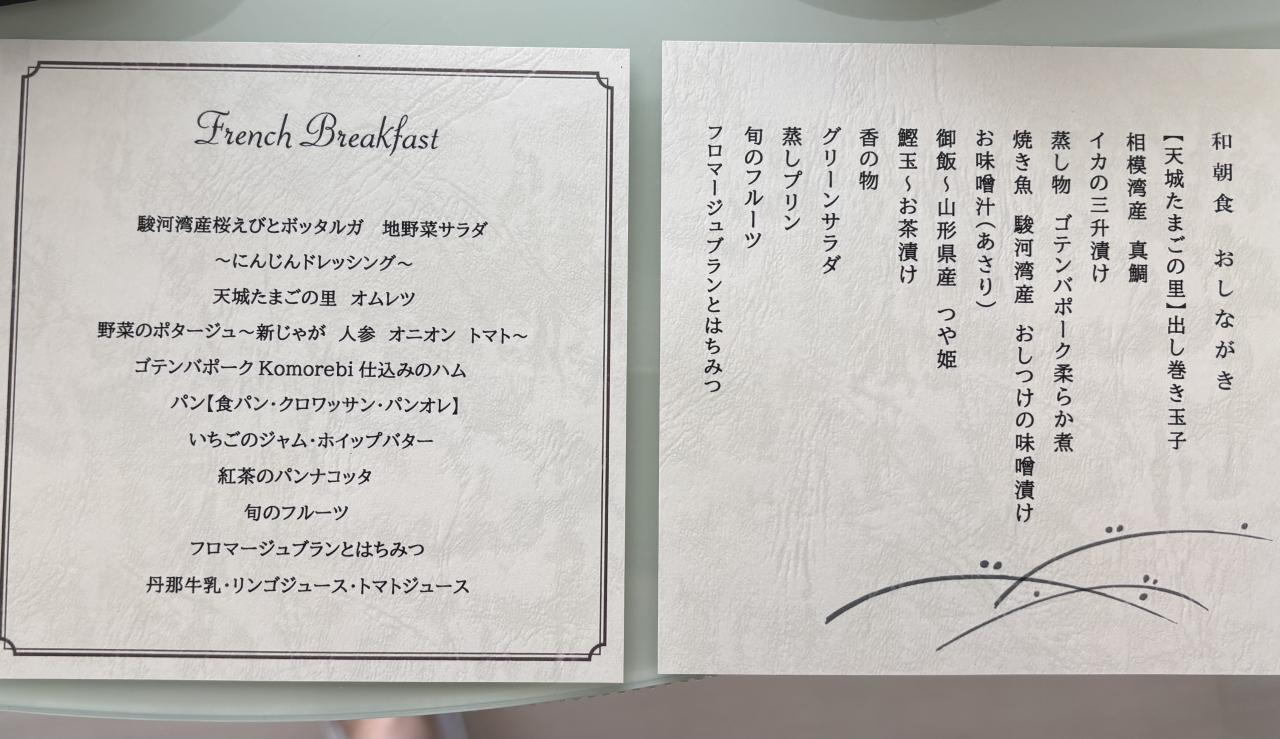 French Breakfast
駿河湾産桜えびとボッタルガ　地野菜サラダ
～にんじんドレッシング～
天城たまごの里　オムレツ
野菜のポタージュ～新じゃが　人参　オニオン　トマト～
ゴテンバポーク Komorebi 仕込みのハム
パン【食パン・クロワッサン・パンオレ】
いちごのジャム・ホイップバター
紅茶のパンナコッタ
旬のフルーツ
フロマージュブランとはちみつ
丹那牛乳・リンゴジュース・トマトジュース
和朝食　おしながき
【天城たまごの里】出し巻き玉子
相模湾産　真鯛
イカの三升漬け
蒸し物　ゴテンバポーク柔らか煮
焼き魚　駿河湾産　おしつけの味噌漬け
お味噌汁（あさり）
御飯～山形県産　つや姫
鰹玉～お茶漬け
香の物
グリーンサラダ
蒸しプリン
旬のフルーツ
フロマージュブランとはちみつ